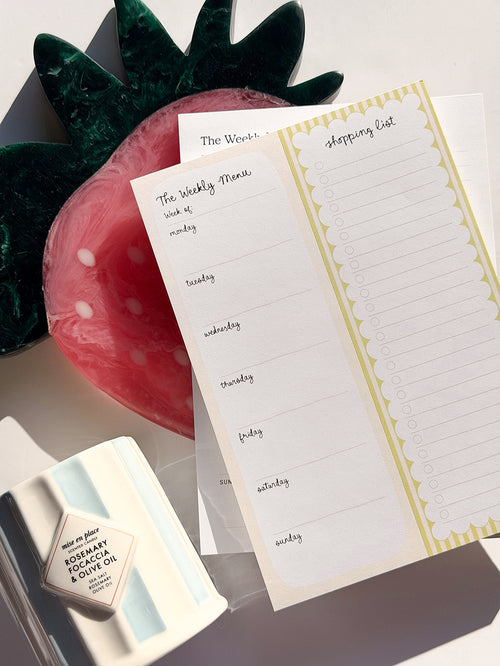 The Weekly
The Weekly Menu
Week of:
monday
tuesday
wednesday
thursday
friday
saturday
sunday
shopping list
SUN
mise en place
SCENTED CANDLE
ROSEMARY
FOCACCIA
& OLIVE OIL
SEA SALT
ROSEMARY
OLIVE OIL